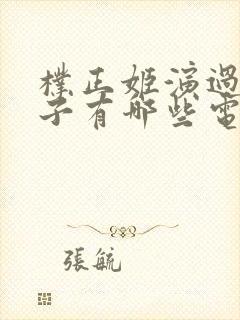 樸正姬演過
子有哪些電
張毓